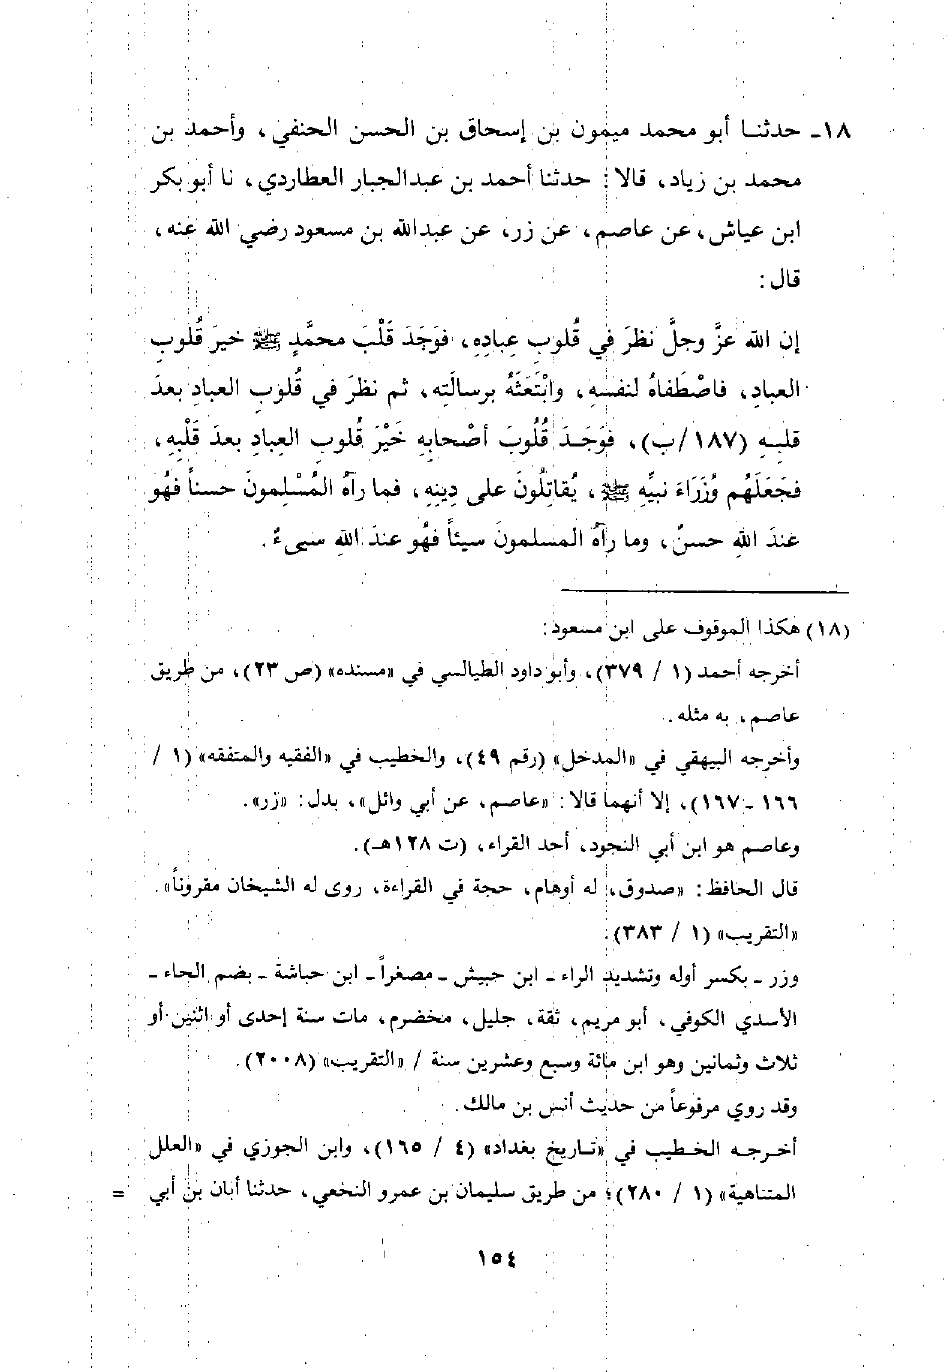 ١٨ـ حدثنـا أبو محمد ميمون بن إسحاق بن الحسن الحنفي، وأحمد بن
محمد بن زياد، قالا: حدثنا أحمد بن عبدالجبار العطاردي، نا أبو بكر
ابن عياش، عن عاصم، عن زر، عن عبدالله بن مسعود رضي الله عنه،
قال:
إن الله عزَّ وجلَّ نظرَ في قُلوبِ عِبادِهِ، فوَجَدَ قَلْبَ محمَّدٍ ﷺ خيرَ قُلوبِ
العبادِ، فاصْطَفاهُ لنفسِهِ، وابْتَعَثَهُ برسالَتِه، ثم نظرَ في قُلوبَ العبادِ بعدَ
قلبـهِ (١٨٧/ب)، فوَجَـدَ قُلُوبَ أصْحابِهِ خَيْرَ قُلوبِ العبادِ بعدَ قَلْبِهِ،
فجَعَلَهُم وُزَرَاءَ نبيِّهِ ﷺ، يُقاتِلُونَ على دِينِهِ، فما رآهُ المُسْلِمونَ حسناً فهُو
عندَ اللهِ حسنٌ، وما رآهُ المسلمونَ سيئاً فهُو عندَ اللهِ سيىءٌ.
(١٨) هكذا الموقوف على ابن مسعود:
أخرجه أحمد (١ / ٣٧٩)، وأبو داود الطيالسي في «مسنده» (ص ٢٣)، من طريق
عاصم، به مثله.
وأخرجه البيهقي في «المدخل» (رقم ٤٩)، والخطيب في «الفقيه والمتفقه» (١ /
١٦٦ ـ ١٦٧)، إلا أنهما قالا: «عاصم، عن أبي وائل»، بدل: «زر».
وعاصم هو ابن أبي النجود، أحد القراء، (ت ١٢٨هـ).
قال الحافظ: «صدوق، له أوهام، حجة في القراءة، روى له الشيخان مقروناً».
«التقريب» (١ / ٣٨٣).
وزر ـ بكسر أوله وتشديد الراء ـ ابن حبيش ـ مصغراً ـ ابن حباشة ـ بضم الحاء ـ
الأسدي الكوفي، أبو مريم، ثقة، جليل، مخضرم، مات سنة إحدى أو اثنين أو
ثلاث وثمانين وهو ابن مائة وسبع وعشرين سنة / «التقريب» (٢٠٠٨).
وقد روي مرفوعاً من حديث أنس بن مالك.
أخـرجـه الخـطيب في «تـاريخ بغداد» (٤ / ١٦٥)، وابن الجوزي في «العلل
المتناهية» (١ / ٢٨٠)؛ من طريق سليمان بن عمرو النخعي، حدثنا أبان بن أبي =
١٥٤